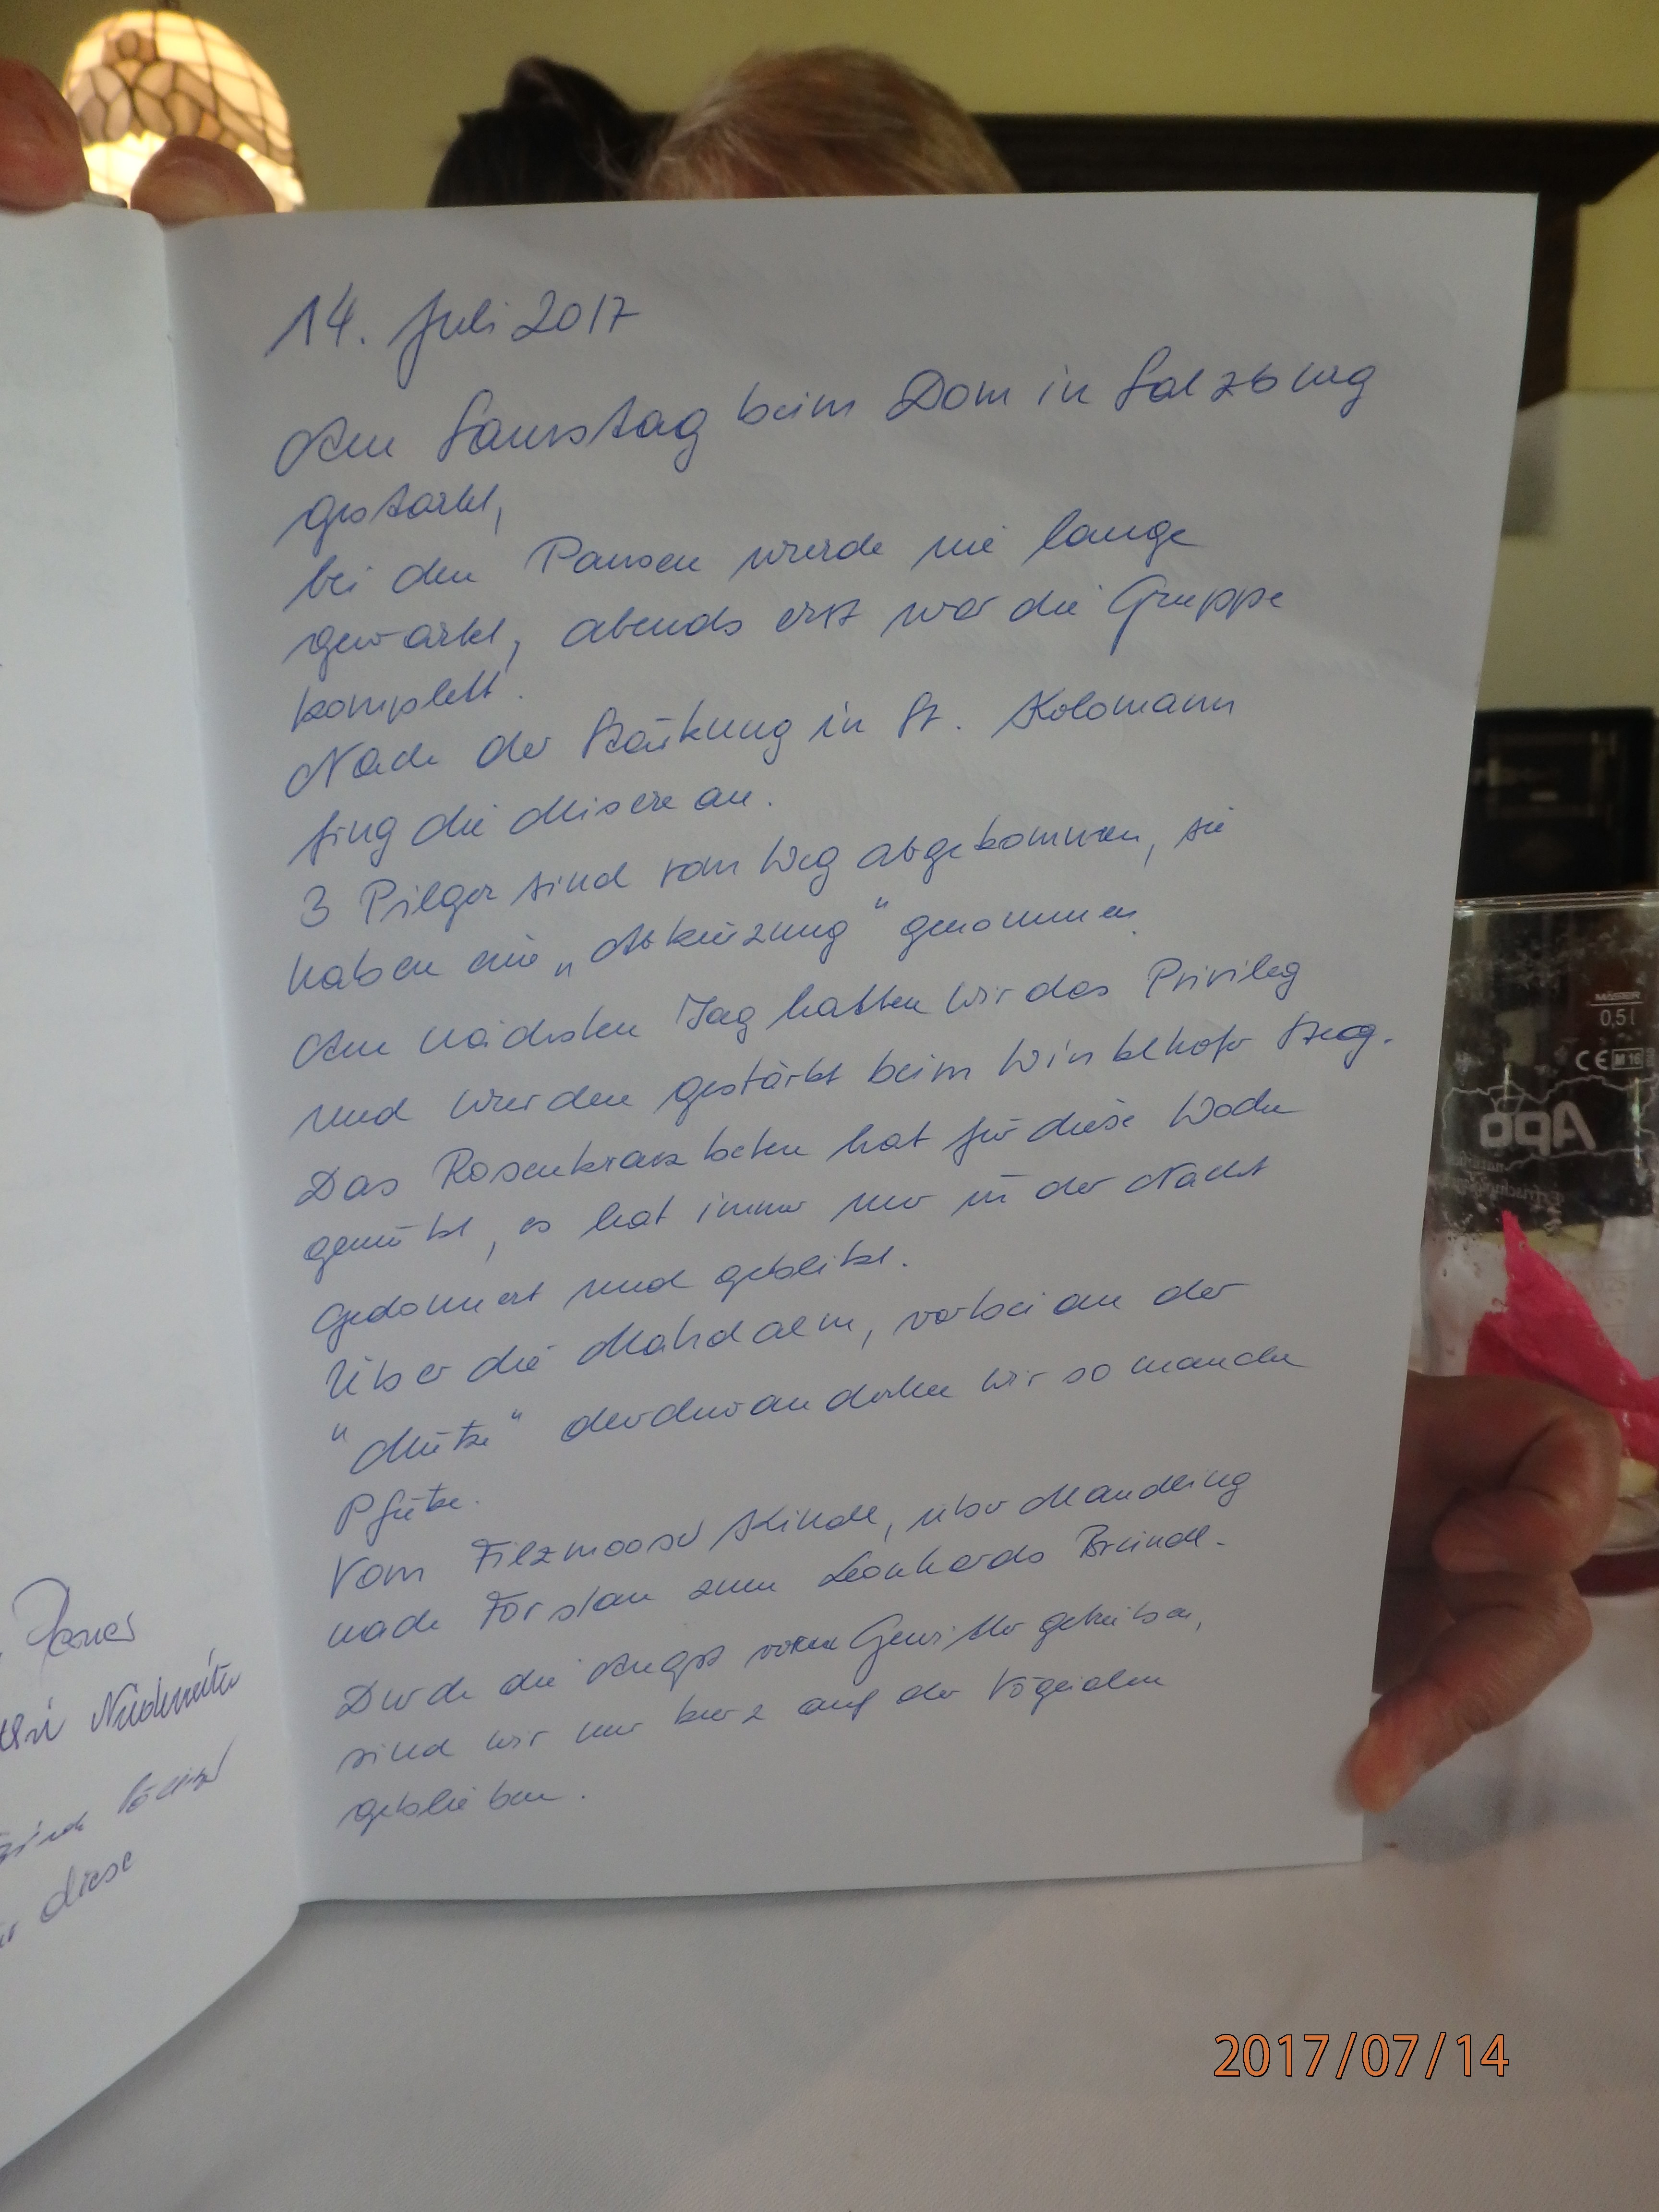 14. Juli 2017
Am Samstag beim Dom in Salzburg
gestartet,
bei den Pausen wurde nie lange
gewartet, abends erst war die Gruppe
komplett.
Nach der Stärkung in St. Kolomann
fing die Misere an.
3 Pilger sind vom Weg abgekommen, sie
haben eine „Abkürzung" genommen.
Am nächsten Tag hatten wir das Privileg
und wurden gestärkt beim Winklhofer
Das Rosenkranz beten hat für diese Woche
genützt, es hat immer nur in der Nacht
gedonnert und geblitzt.
Über die Mahdalm, vorbei an der
"Mütze" durchwanderten wir so manche
Pfütze.
Vom Filzmooser Kindl, über Mandling
nach Forstau zum Leonhards Bründl.
Durch die Angst vorm Gewitter getrieben,
sind wir nur kurz auf der Vögeialm
geblieben.
diese
MÄSTER
0,5 l
CE M16
Apo
2017/07/14